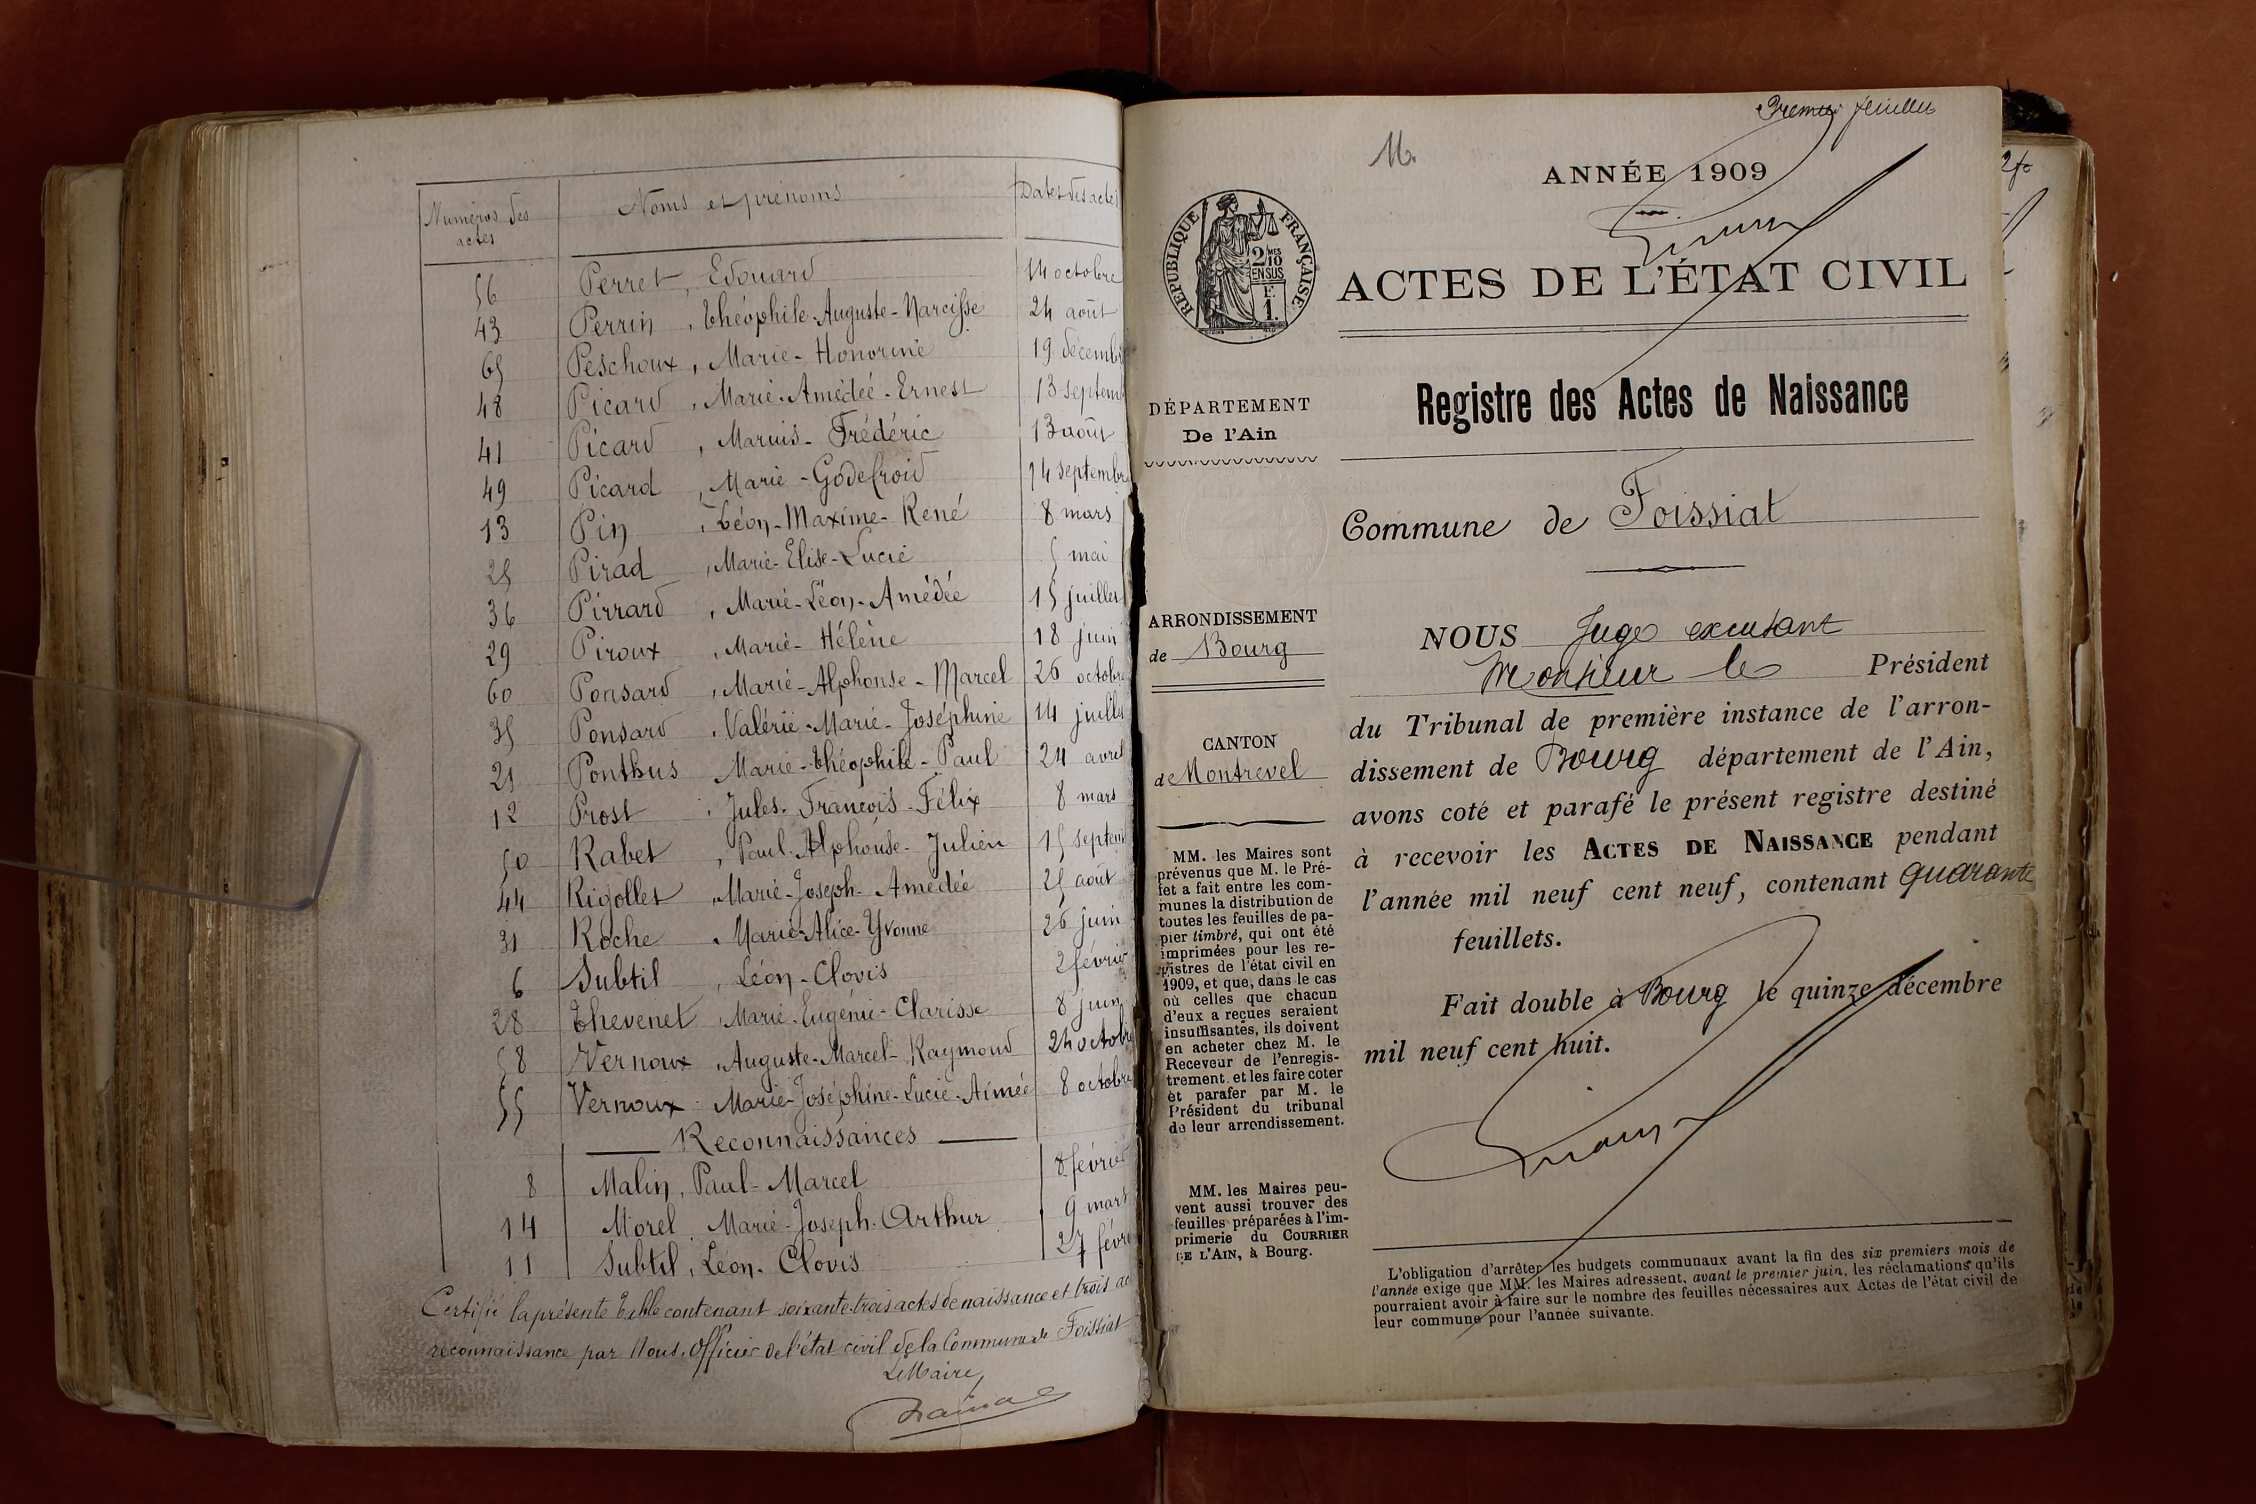 Numéros des actes | Noms et prénoms | Dates des actes
56 Perret, Edouard 14 octobre
43 Perrin, Théophile-Auguste-Narcisse 24 août
65 Peschoux, Marie-Honorine 19 décemb
48 Picard, Marie-Amédée-Ernest 13 septem
41 Picard, Marius-Frédéric 13 août
49 Picard, Marie-Godefroid 14 septembre
13 Pin, Léon-Maxime-René 8 mars
25 Pirad, Marie-Elise-Lucie 5 mai
36 Pirrard, Marie-Léon-Amédée 15 juillet
29 Piroux, Marie-Hélène 18 juin
60 Ponsard, Marie-Alphonse-Marcel 26 octobre
35 Ponsard, Valérie-Marie-Joséphine 14 juillet
21 Ponthus, Marie-Théophile-Paul 24 avril
12 Prost, Jules-François-Félix 8 mars
50 Rabet, Paul-Alphonse-Julien 15 septem
44 Rigollet, Marie-Joseph-Amédée 25 août
31 Roche, Marie-Alice-Yvonne 26 juin
6 Subtil, Léon-Clovis 2 février
28 Thevenet, Marie-Eugénie-Clarisse 8 juin
58 Vernoux, Auguste-Marcel-Raymond 24 octobre
55 Vernoux, Marie-Joséphine-Lucie-Aimée 8 octobre
Reconnaissances
8 Malin, Paul-Marcel 8 février
14 Morel, Marie-Joseph-Arthur 9 mars
11 Subtil, Léon-Clovis 27 févr
Certifié la présente Table contenant soixante-trois actes de naissance et trois ac
reconnaissance par Nous, Officier de l'état civil de la Commune de Foissiat
Le Maire,
Premier feuillet
ANNÉE 1909
RÉPUBLIQUE FRANÇAISE
2 MES
10
EN SUS
1.
ACTES DE L'ÉTAT CIVIL
Registre des Actes de Naissance
DÉPARTEMENT
De l'Ain
Commune de Foissiat
ARRONDISSEMENT
de Bourg
CANTON
de Montrevel
MM. les Maires sont
prévenus que M. le Pré-
fet a fait entre les com-
munes la distribution de
toutes les feuilles de pa-
pier timbré, qui ont été
imprimées pour les re-
gistres de l'état civil en
1909, et que, dans le cas
où celles que chacun
d'eux a reçues seraient
insuffisantes, ils doivent
en acheter chez M. le
Receveur de l'enregis-
trement et les faire coter
et parafer par M. le
Président du tribunal
de leur arrondissement.
MM. les Maires peu-
vent aussi trouver des
feuilles préparées à l'im-
primerie du COURRIER
DE L'AIN, à Bourg.
NOUS Juge excusant
Monsieur le Président
du Tribunal de première instance de l'arron-
dissement de Bourg département de l'Ain,
avons coté et parafé le présent registre destiné
à recevoir les ACTES DE NAISSANCE pendant
l'année mil neuf cent neuf, contenant quarante
feuillets.
Fait double à Bourg le quinze décembre
mil neuf cent huit.
L'obligation d'arrêter les budgets communaux avant la fin des six premiers mois de
l'année exige que MM. les Maires adressent, avant le premier juin, les réclamations qu'ils
pourraient avoir à faire sur le nombre des feuilles nécessaires aux Actes de l'état civil de
leur commune pour l'année suivante.